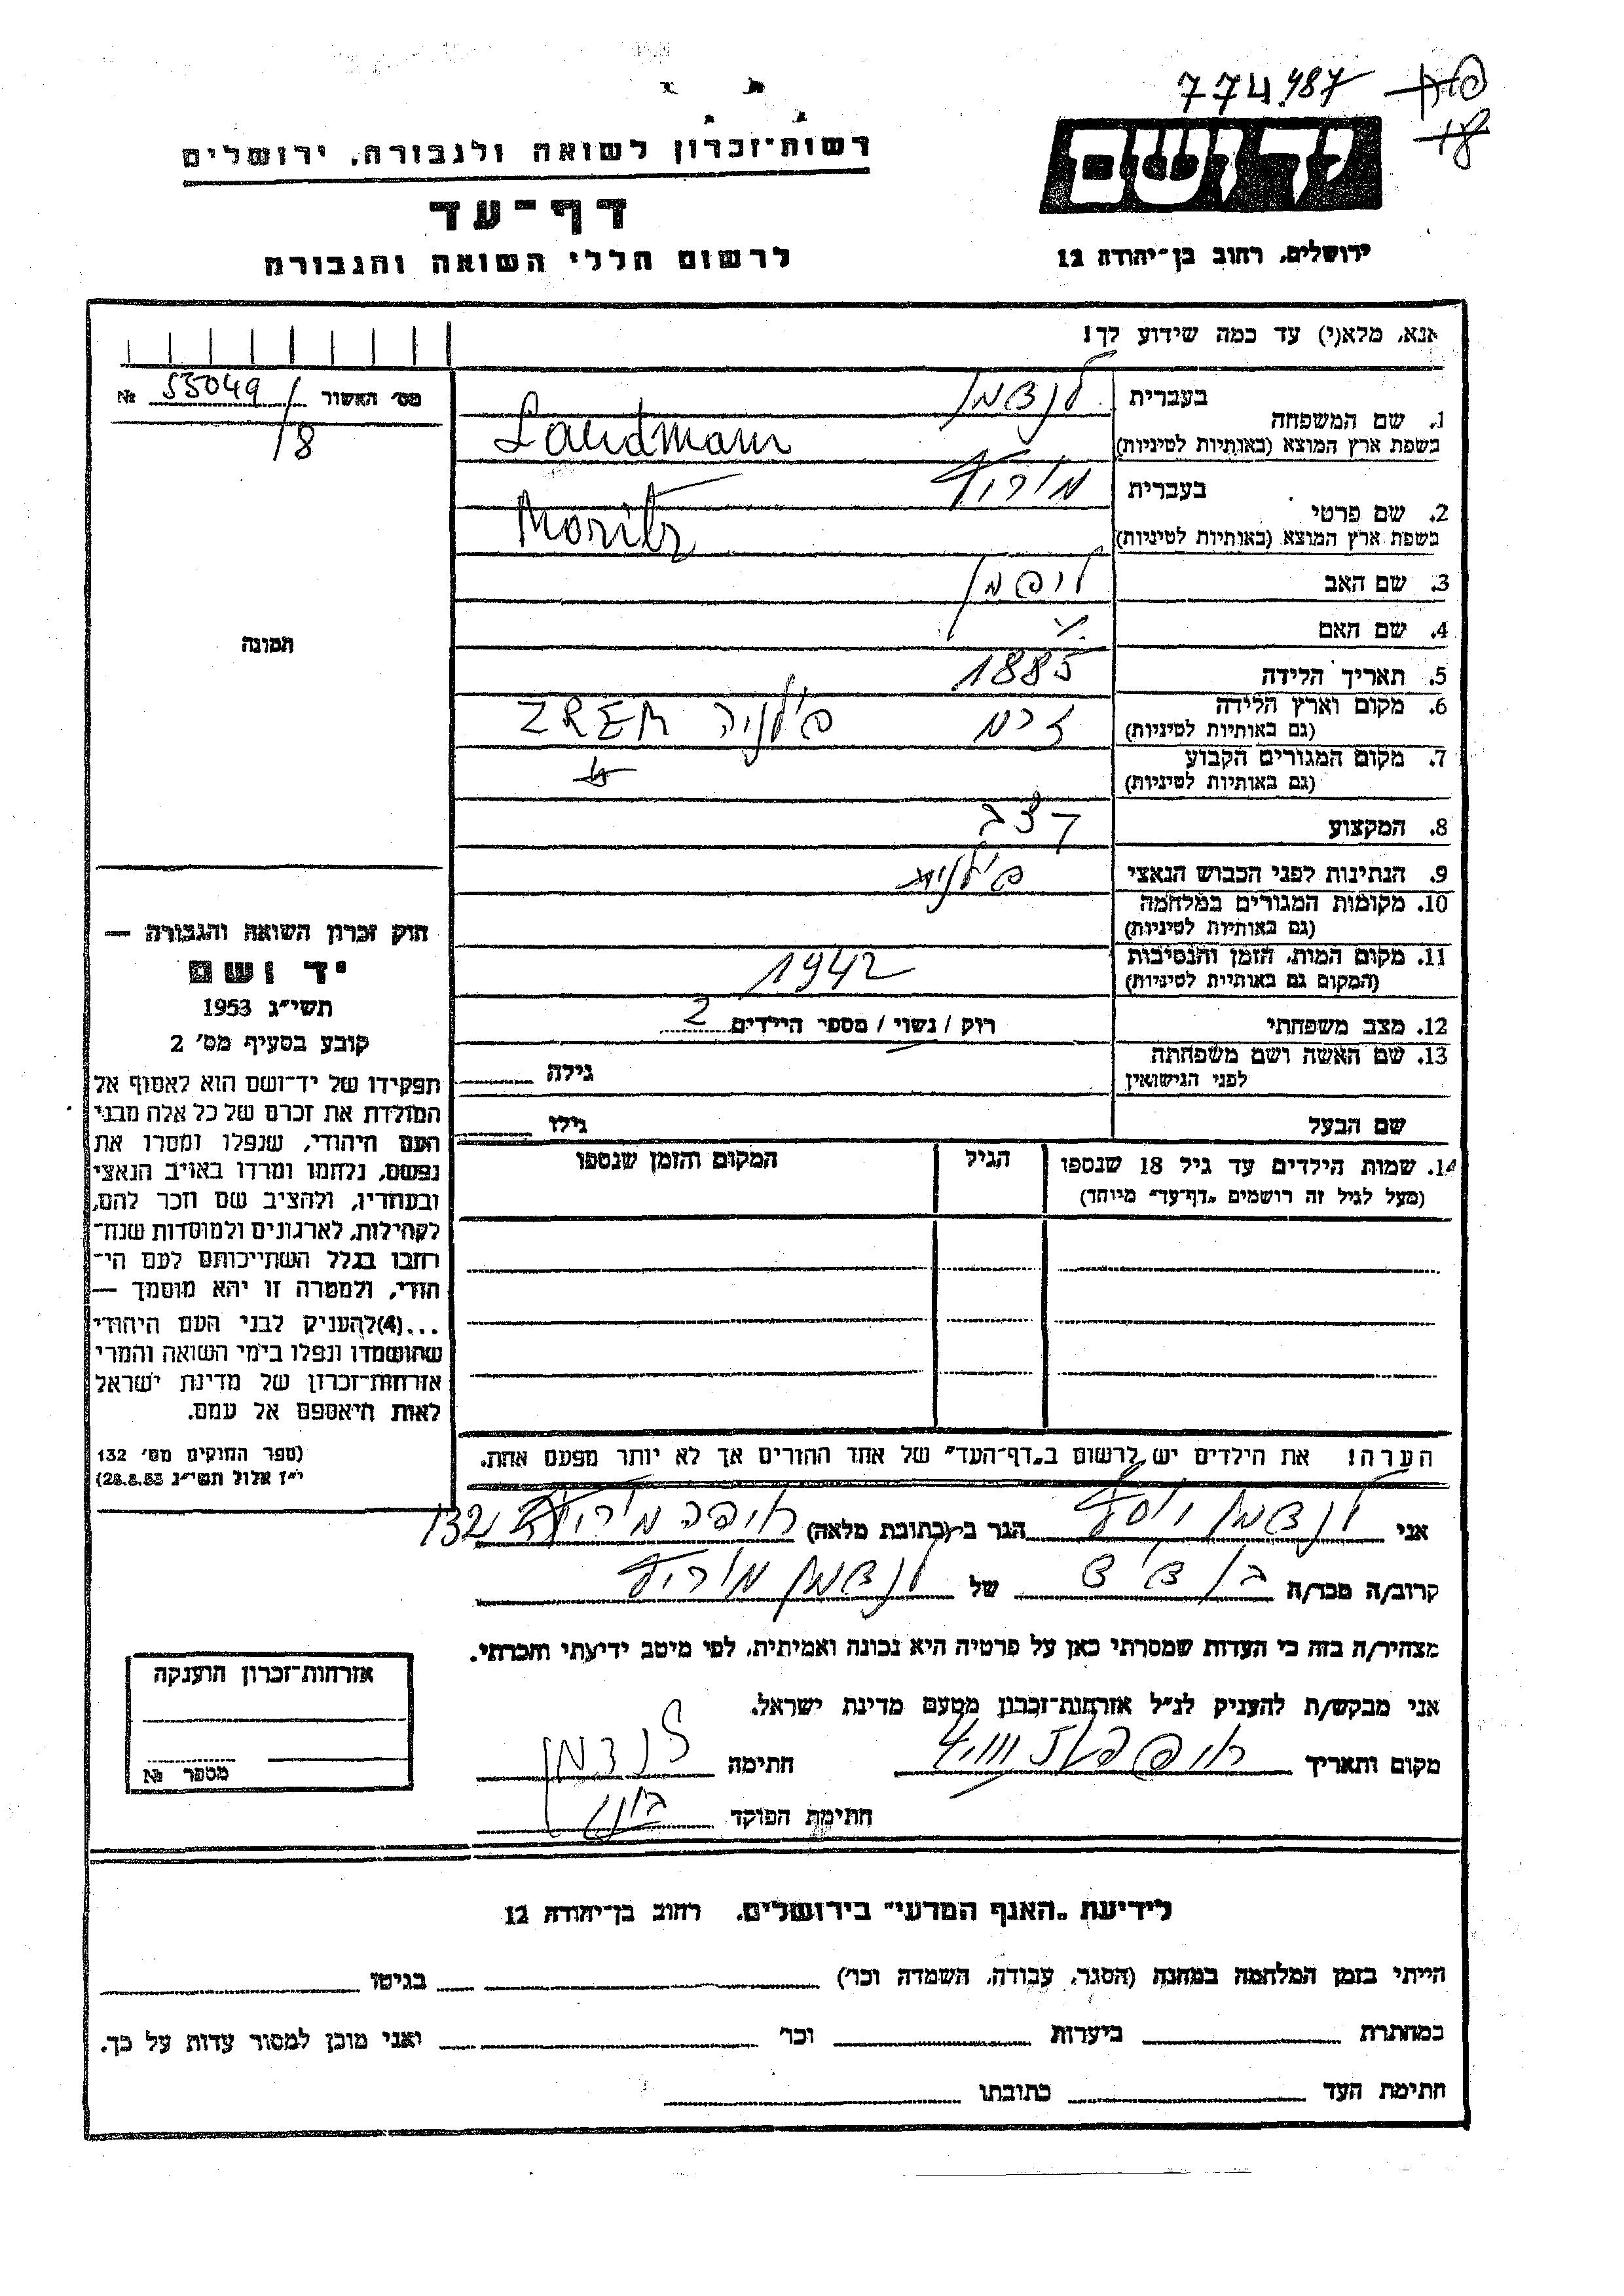 774.487
18
רשות־זכרון לשואה ולגבורה, ירושלים
יד ושם
דף־עד
ירושלים, רחוב בן־יהודה 12
לרשום חללי השואה והגבורה
אנא, מלא(י) עד כמה שידוע לך!
מס׳ האשור 53049 №
/8
1. שם המשפחה
בעברית לנדמן
בשפת ארץ המוצא (באותיות לטיניות) Landmann
2. שם פרטי
בעברית מוריץ
בשפת ארץ המוצא (באותיות לטיניות) Moritz
3. שם האב ליפמן
4. שם האם
5. תאריך הלידה 1885
6. מקום וארץ הלידה
(גם באותיות לטיניות) פולניה ZREM
7. מקום המגורים הקבוע
(גם באותיות לטיניות)
8. המקצוע קצב
9. הנתינות לפני הכבוש הנאצי
10. מקומות המגורים במלחמה
(גם באותיות לטיניות)
11. מקום המות, הזמן והנסיבות
(המקום גם באותיות לטיניות) 1942
12. מצב משפחתי רוק / נשוי / מספר הילדים 2
13. שם האשה ושם משפחתה
לפני הנישואין גילה
שם הבעל גילו
14. שמות הילדים עד גיל 18 שנספו הגיל המקום והזמן שנספו
(מעל לגיל זה רושמים „דף־עד״ מיוחד)
תמונה
חוק זכרון השואה והגבורה —
יד ושם
תשי״ג 1953
קובע בסעיף מס׳ 2
תפקידו של יד־ושם הוא לאסוף אל
המולדת את זכרם של כל אלה מבני
העם היהודי, שנפלו ומסרו את
נפשם, נלחמו ומרדו באויב הנאצי
ובעוזריו, ולהציב שם וזכר להם,
לקהילות, לארגונים ולמוסדות שנח־
רבו בגלל השתייכותם לעם הי־
הודי, ולמטרה זו יהא מוסמך —
...(4)להעניק לבני העם היהודי
שהושמדו ונפלו בימי השואה והמרי
אזרחות־זכרון של מדינת ישראל
לאות היאספם אל עמם.
(ספר החוקים מס׳ 132
י״ז אלול תשי״ג 28.8.53)
הערה! את הילדים יש לרשום ב„דף־העד״ של אחד ההורים אך לא יותר מפעם אחת.
אני לנדמן יוסף הגר ב־(כתובת מלאה) 132
קרוב/ה מכר/ה בן דוד של לנדמן מוריץ
מצהיר/ה בזה כי העדות שמסרתי כאן על פרטיה היא נכונה ואמיתית, לפי מיטב ידיעתי והכרתי.
אני מבקש/ת להעניק לנ״ל אזרחות־זכרון מטעם מדינת ישראל.
מקום ותאריך חתימה לנדמן
חתימת הפוקד
אזרחות־זכרון הוענקה
מספר №
לידיעת „האגף המדעי״ בירושלים, רחוב בן־יהודה 12
הייתי בזמן המלחמה במחנה (הסגר, עבודה, השמדה וכו׳) בגיטו
במחתרת ביערות וכו׳ ואני מוכן למסור עדות על כך.
חתימת העד כתובתו